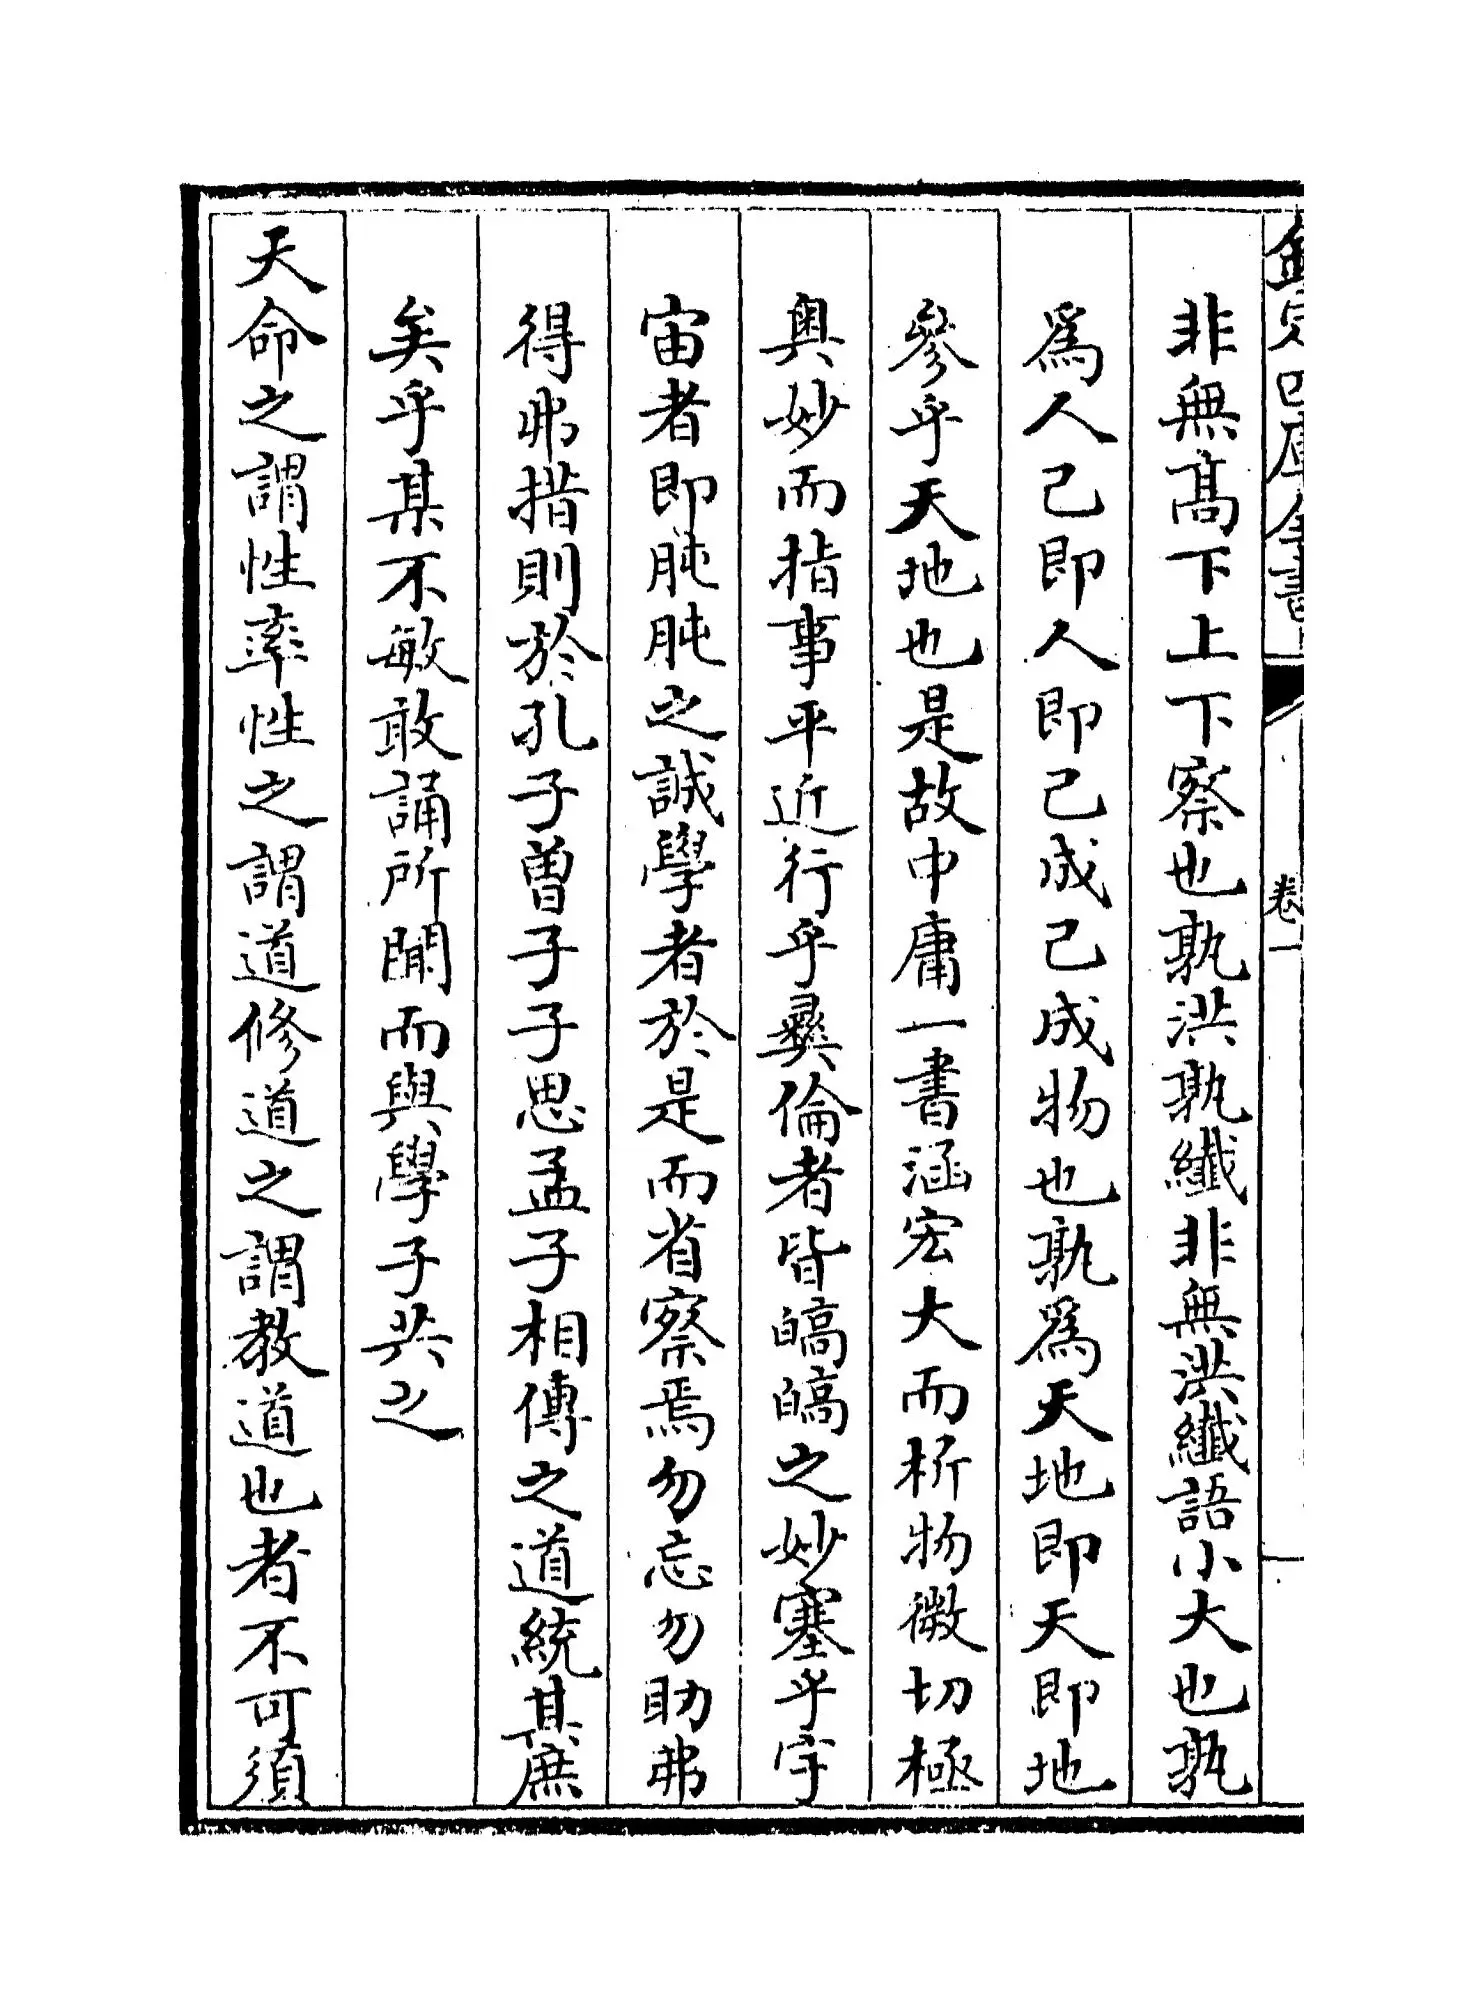 欽定四庫全書
卷一
非無高下上下察也孰洪孰纖非無洪纖語小大也孰
為人己即人即己成己成物也孰為天地即天即地
參乎天地也是故中庸一書涵宏大而析物微切極
奥妙而指事平近行乎彛倫者皆皜皜之妙塞乎宇
宙者即肫肫之誠學者於是而省察焉勿忘勿助弗
得弗措則於孔子曽子子思孟子相傳之道統其庶
矣乎某不敏敢誦所聞而與學子共之
天命之謂性率性之謂道修道之謂教道也者不可須